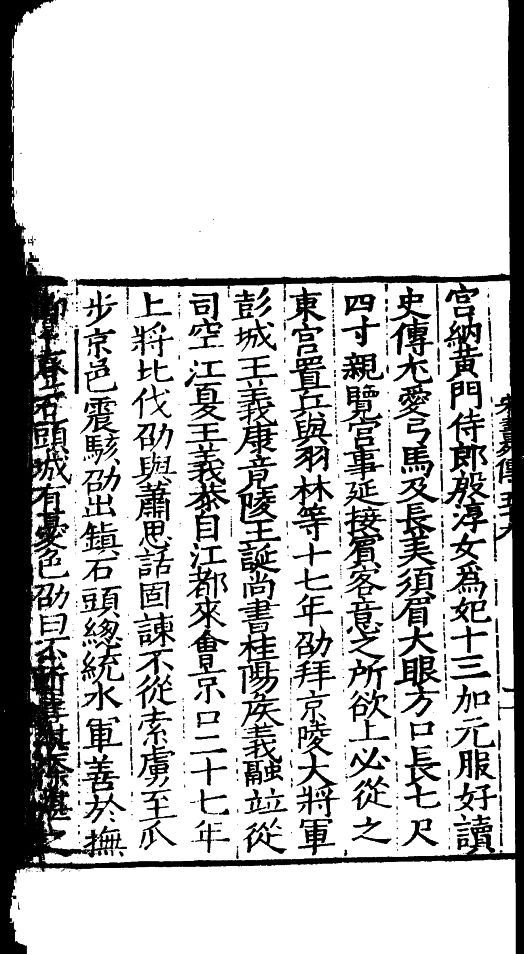 宫納黄門侍郎殷淳女爲妃十三加元服好讀
史傳尤愛弓馬及長美須眉大眼方口長七尺
四寸親覽宫事延接賓客意之所欲上必從之
東宫置兵與羽林等十七年劭拜京陵大將軍
彭城王義康竟陵王誕尚書桂陽侯義融竝從
司空江夏王義恭自江都來會京口二十七年
上將北伐劭與蕭思話固諫不從索虜至瓜
步京邑震駭劭出鎮石頭緫統水軍善於撫
登石頭城有憂色劭曰不